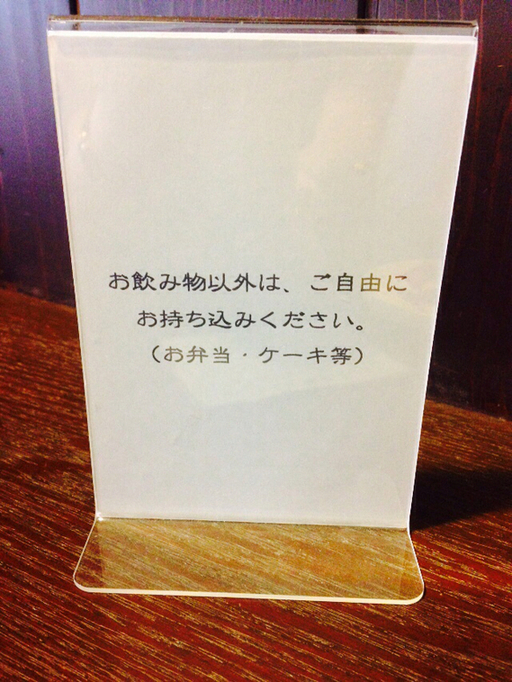 お飲み物以外は、ご自由に
お持ち込みください。
（お弁当・ケーキ等）